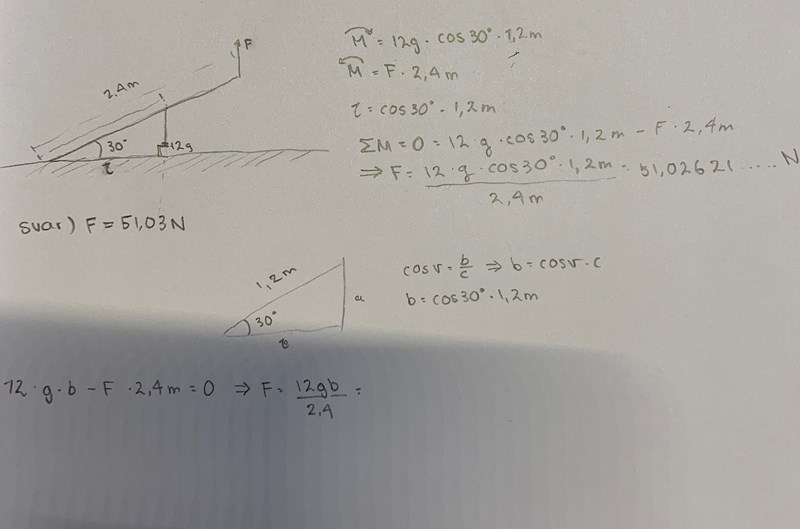 F
2,4m
30°
12g
τ
M = 12g · cos30° · 1,2m
M = F · 2,4m
τ = cos30° · 1,2m
ΣM = 0 = 12 · g · cos30° · 1,2m - F · 2,4m
⇒ F = 12 · g · cos30° · 1,2m = 51,02621 ..... N
2,4m
svar) F = 51,03N
1,2m
30°
a
b
cosv = b/c ⇒ b = cosv · c
b = cos30° · 1,2m
12 · g · b - F · 2,4m = 0 ⇒ F = 12gb =
2,4